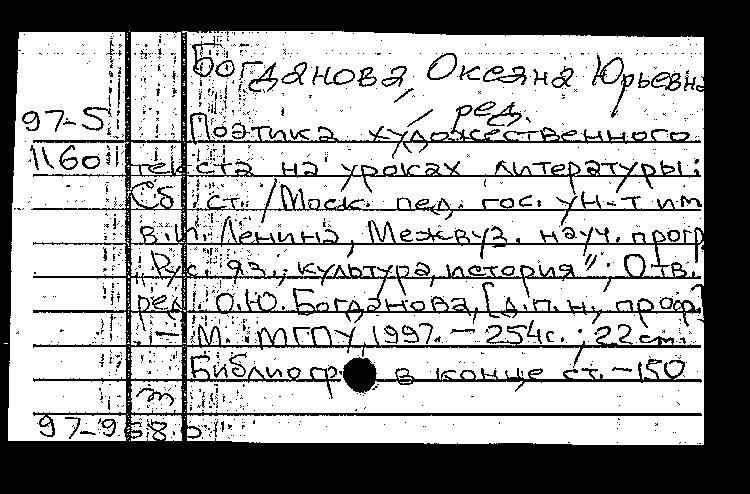 Богданова, Оксана Юрьевна
ред.
97-5 Поэтика художественного
1160 текста на уроках литературы:
Сб. ст. / Моск. пед. гос. ун-т им
В.И. Ленина, Межвуз. науч. прогр
"Рус. яз., культура, история"; Отв.
ред. О.Ю. Богданова, [д.п.н., проф.]
. - М. МГПУ, 1997. - 254с.; 22см.
Библиогр в конце ст. - 150
m
97-968